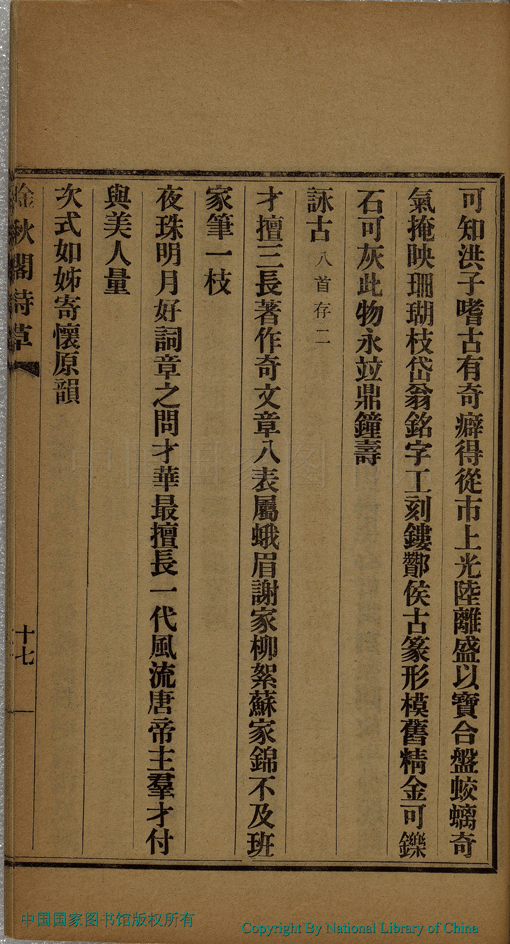 可知洪子嗜古有奇癖得從市上光陸離盛以寶合盤蛟螭奇
氣掩映珊瑚枝岱翁銘字工刻鏤酇侯古篆形模舊精金可鑠
石可灰此物永竝鼎鐘壽
詠古 八首存二
才擅三長著作奇文章八表屬蛾眉謝家柳絮蘇家錦不及班
家筆一枝
夜珠明月好詞章之問才華最擅長一代風流唐帝主羣才付
與美人量
次式如姊寄懷原韻
秋閣詩草
十七
中国国家图书馆版权所有
Copyright By National Library of China